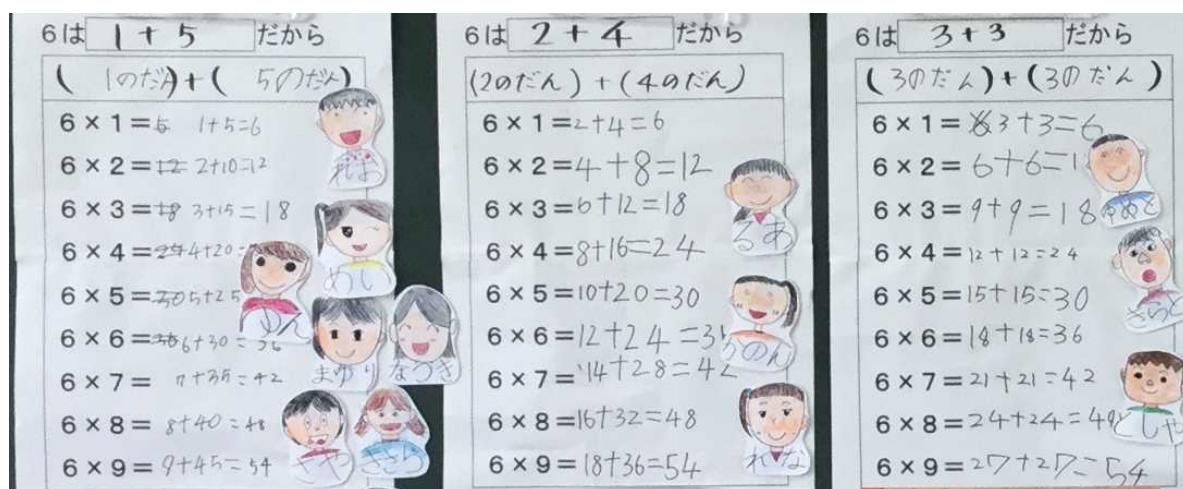 6は 1+5 だから
( 1のだん)+( 5のだん)
6×1=6 1+5=6
6×2=12 2+10=12
6×3=18 3+15=18
6×4=24 4+20=
6×5=30 5+25
6×6=36 6+30=36
6×7= 7+35=42
6×8= 8+40=48
6×9=9+45=54
れお
めい
まゆり
なつき
さや
ささら
6は 2+4 だから
(2のだん)+(4のだん)
6×1=2+4=6
6×2=4+8=12
6×3=6+12=18
6×4=8+16=24
6×5=10+20=30
6×6=12+24=3
6×7=14+28=42
6×8=16+32=48
6×9=18+36=54
るあ
かのん
れな
6は 3+3 だから
(3のだん)+(3のだん)
6×1=3+3=6
6×2=6+6=1
6×3=9+9=18
6×4=12+12=24
6×5=15+15=30
6×6=18+18=36
6×7=21+21=42
6×8=24+24=48
6×9=27+27=54